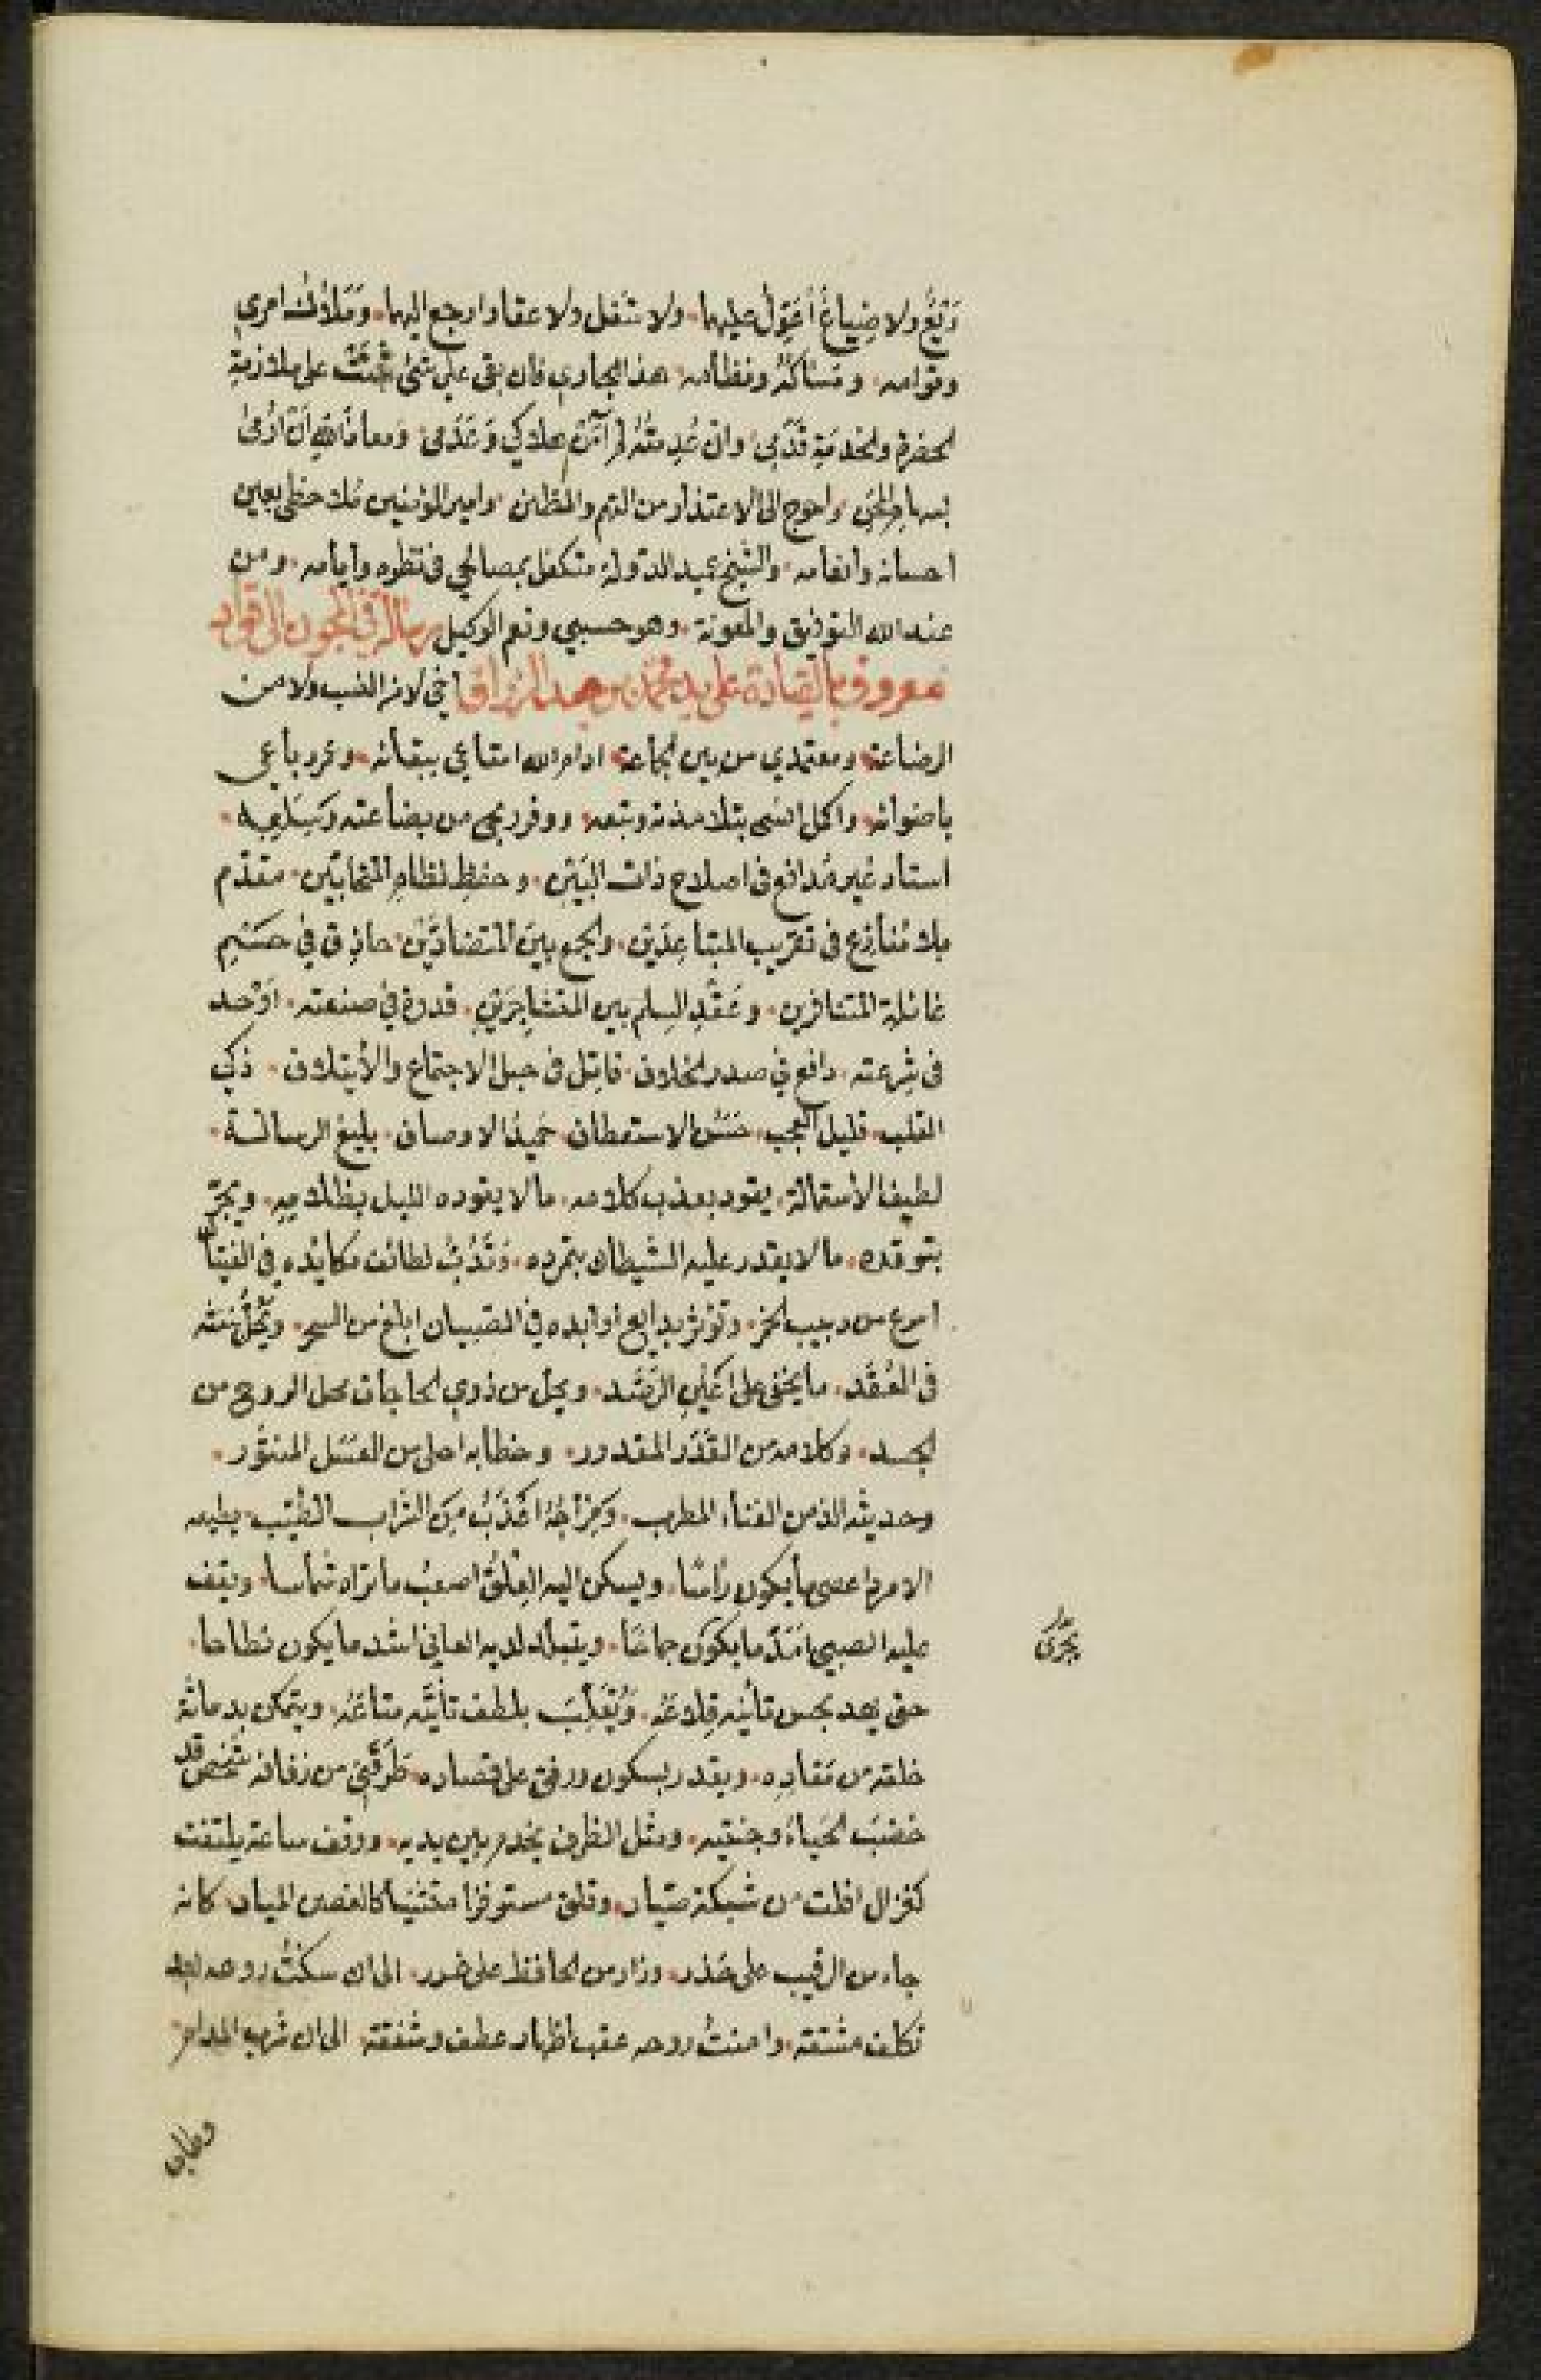 رَبْع ولا ضِياع أُعَوِّل عليها ولا شغل ولا عقار ارجع اليها ومَلاك امري
وقوامه ومَسَاكه ونظامه هذا الجاري فان بقى علي شئ ثبتت على ملازمة
الحضرة والخدمة قدمي وان عُدمته لم آمن هلاكي وعَدَمي ومعاذ الله أن أُرمى
بسهام المحن واحوج الى الاعتذار من التهم والظنن وامير المؤمنين حظي بعين
احسانه وانعامه والشيخ عميد الدولة متكفل بمصالحي في نظره وأيامه ومن
عند الله التوفيق والمعونة وهو حسبي ونعم الوكيل رسالة في المجون الى قواد
معروف بالقيادة على يد محمد بن عبد الرزاق اخي لا من النسب ولا من
الرضاعة ومعتمدي من بين الجماعة ادام الله امتاعي ببقائه وعمر باعي
باضوائه واكمل انسي بتلامذته وتبعه ووفر ربحي من بضاعته وسَلعه
استاد غير مُدافع في اصلاح ذات البَيْن وحفظِ نظامِ المتحابّين مقدّم
بلا مُنازع في تقريب المتباعدَين والجمع بين المتضادّين حاذق في حَسْم
غائلة المتنافرين وعَقْد السلم بين المتشاجرَين قدوة في صنعته اوحد
في شرعته دافع في صدر الخلاف فاتل في حبل الاجتماع والأيتلاف ذكي
القلب قليل العجب حَسَن الاستعطاف حميد الاوصاف بليغ الرسالة
لطيف الاستمالة يقود بعذب كلامه ما لا يقوده الليل بظلامه ويجرّ
بتوقده ما لا يقدر عليه الشيطان بتمرده وتدُبّ لطائف مكائده في الفتيان
اسرع من دبيب الخمر وتؤثر بدايع اوابده في الصبيان ابلغ من السحر ويحُلّ نفثه
في العُقَد ما يخفى على اعين الرَصَد ويحل من ذوي الحاجات محل الروح من
الجسد وكلامه من القَدَر المقدور وخطابه احلى من العسل المشور
وحديثه الذ من الغناء المطرب ومزاجُه اعذَبُ مِن الشراب الطيّب يطيعه
الامرد اعصى ما يكون راسًا ويسكن اليه العِلْق اصعب ما تراه شماسا ويقف
عليه الصبي امَدّ ما يكون جماحًا ويتبلد لديه العاني اشد ما يكون نطاحا
يجرى
حتى يهد بحسن تأنيه قلاعَه ويُقلّب بلطف تأنّيه متاعَه ويتمكن بدماثة
خلقه من مَقاده ويقدر بسكون ورفق على قصاده طَرَقَني من زفافه شخص قد
خضب الحياءُ وجنتيه ومثل الظرف يخدم بين يديه ووقف ساعة يلتفت
كغزال افلت من شبكة صيّاد وقلق مستوفزا متثنيا كالغصن المياد كانه
جاء من الرقيب على حَذر وزار من الحافظ على غرر الى ان سكنتُ روعه بعد
تكلف مشقة وامنتُ روحه عقب اظهار عطف وشفقة الى ان شرب المدام
وطاب